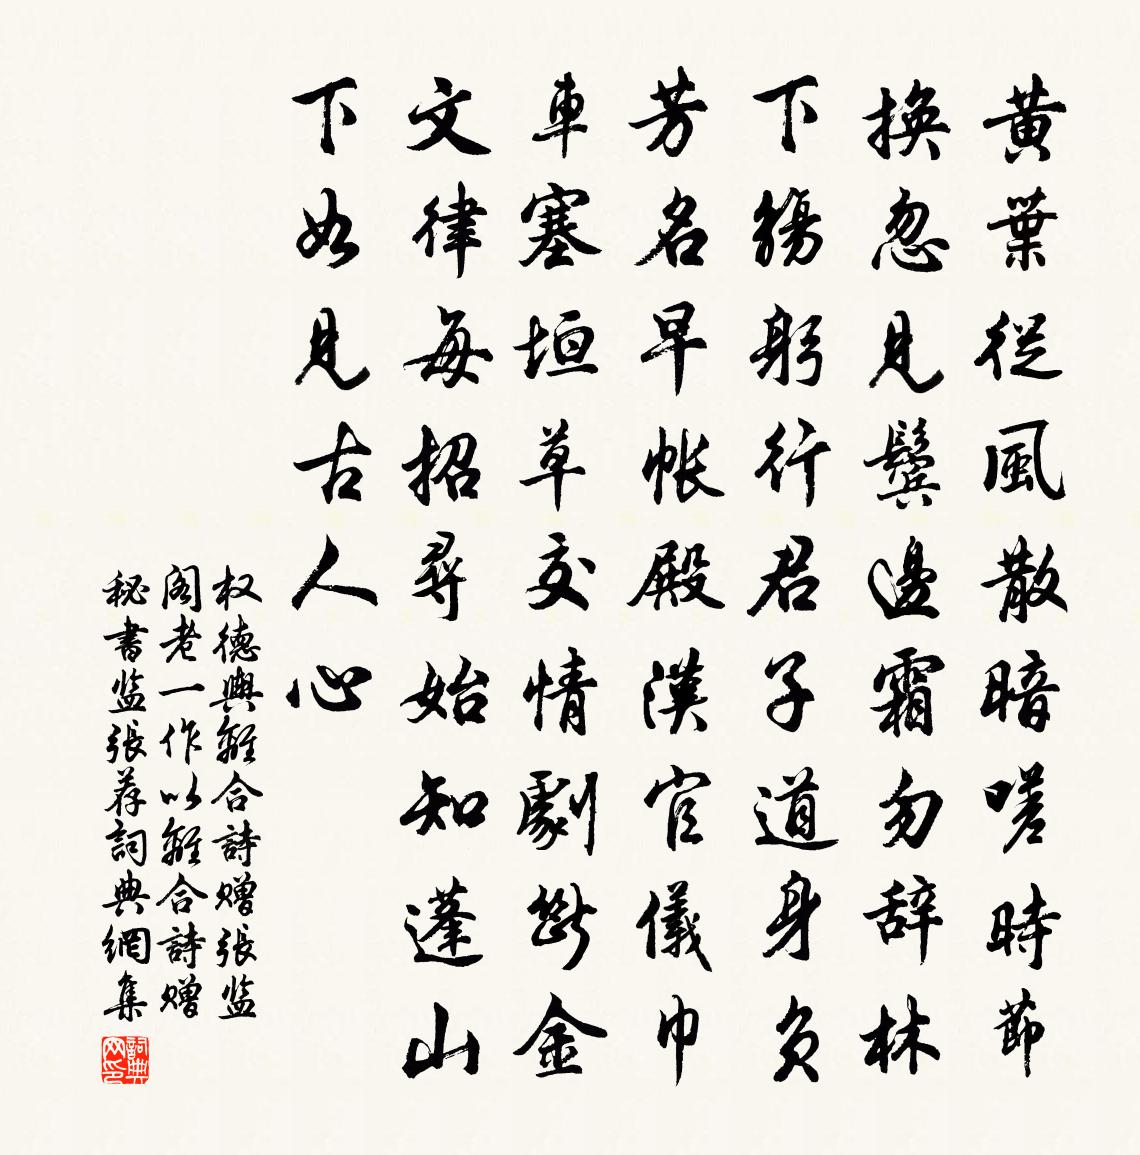 黃葉從風散暗嗟時節
換忽見鬢邊霜勿辞林
下觴躬行君子道身負
芳名早帳殿漢官儀巾
車塞垣草交情劇斷金
文律每招尋始知蓬山
下如見古人心
权德輿離合詩赠張监
阁老一作以離合詩赠
秘書监張荐詞典網集
詞典网印